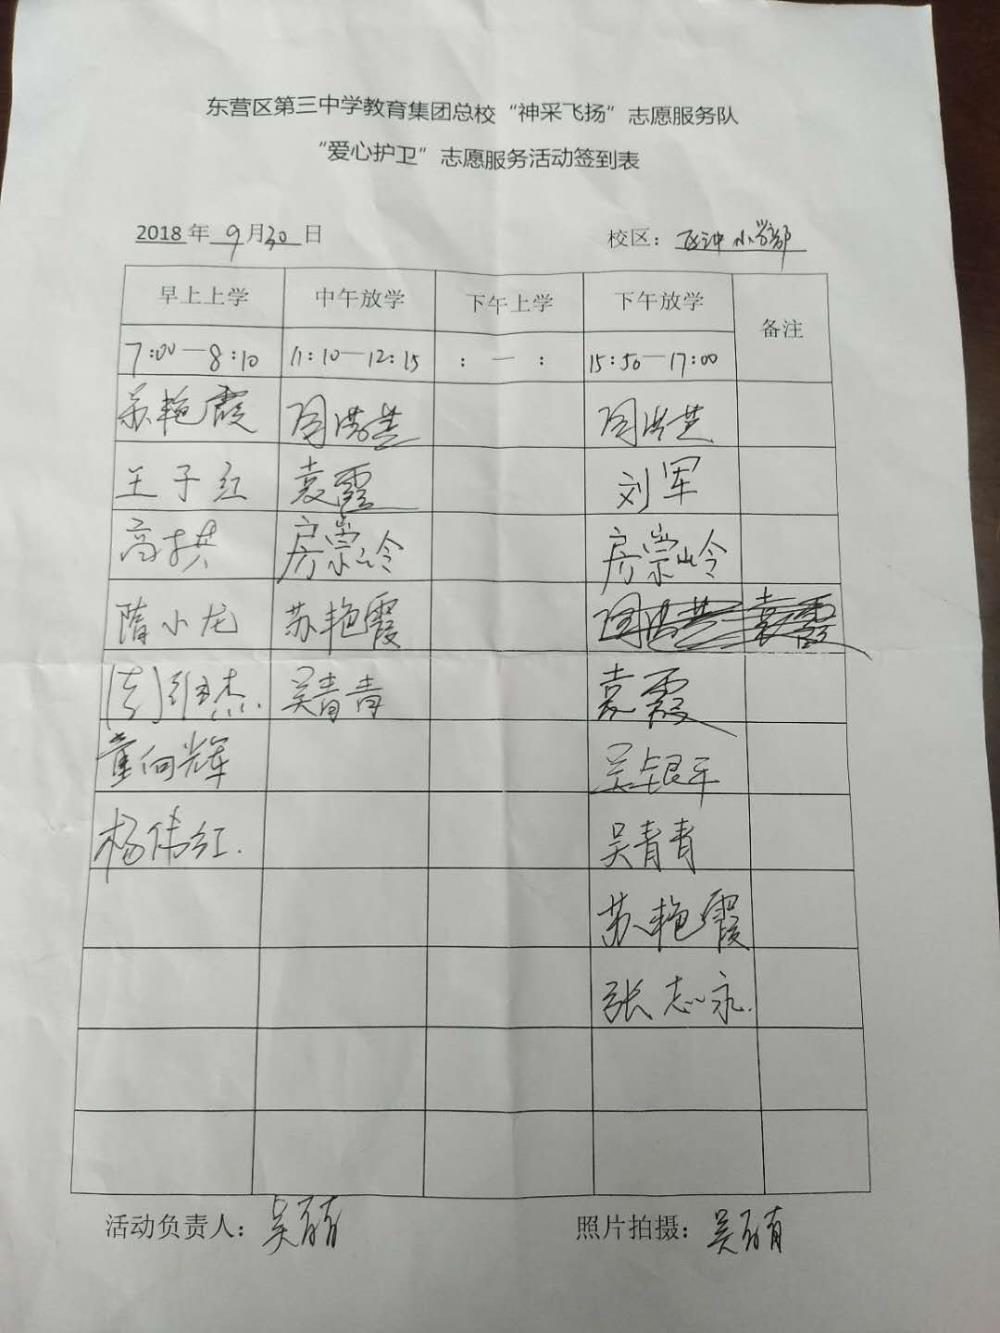 东营区第三中学教育集团总校“神采飞扬”志愿服务队
“爱心护卫”志愿服务活动签到表
2018年 9月30日 校区： 小学部
早上上学 中午放学 下午上学 下午放学 备注
7:00—8:10 11:10—12:15 : — : 15:50—17:00
苏艳霞
王子红 袁霞 刘军
高 房崇岭 房崇岭
隋小龙 苏艳霞 袁霞
维杰 吴青青 袁霞
董向辉 吴银平
杨伟红 吴青青
苏艳霞
张志永
活动负责人：吴青青 照片拍摄：吴青青